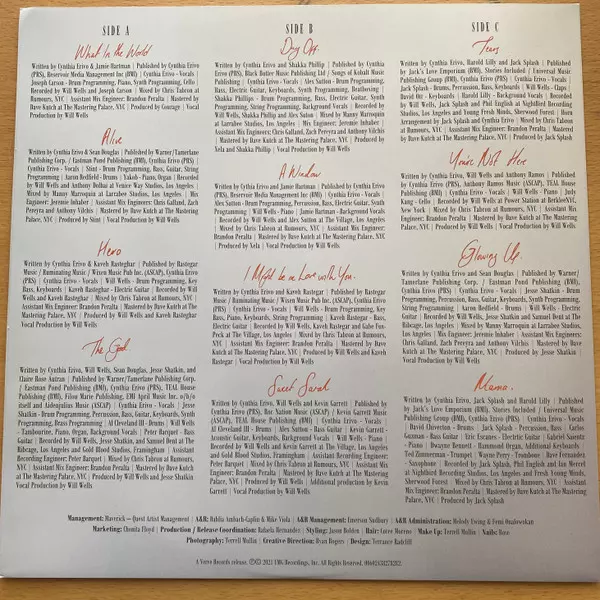 SIDE A
What In the World
Written by Cynthia Erivo & Jamie Hartman | Published by Cynthia Erivo
(PRS), Reservoir Media Management Inc (BMI) | Cynthia Erivo - Vocals |
Joseph Carson - Drum Programming, Piano, Synth Programming, Cello |
Recorded by Will Wells and Joseph Carson | Mixed by Chris Tabron at
Rumours, NYC | Assistant Mix Engineer: Brandon Peralta | Mastered by
Dave Kutch at The Mastering Palace, NYC | Produced by Courage | Vocal
Production by Will Wells
Alive
Written by Cynthia Erivo & Sean Douglas | Published by Warner/Tamerlane
Publishing Corp. / Eastman Pond Publishing (BMI), Cynthia Erivo (PRS) |
Cynthia Erivo - Vocals | Sint - Drum Programming, Bass, Guitar, String
Programming | Aaron Redfield - Drums | Yakob - Piano, Organ | Recorded
by Will Wells and Anthony Dolhai at Venice Way Studios, Los Angeles |
Mixed by Manny Marroquin at Larrabee Studios, Los Angeles | Mix
Engineer: Jeremie Inhaber | Assistant Mix Engineers: Chris Galland, Zach
Pereyra and Anthony Vilchis | Mastered by Dave Kutch at The Mastering
Palace, NYC | Produced by Sint | Vocal Production by Will Wells
Hero
Written by Cynthia Erivo & Kaveh Rastegar | Published by Rastegar
Music / Ruminating Music / Wixen Music Pub Inc. (ASCAP), Cynthia Erivo
(PRS) | Cynthia Erivo - Vocals | Will Wells - Drum Programming, Key
Bass, Keyboards | Kaveh Rastegar - Electric Guitar | Recorded by Will
Wells and Kaveh Rastegar | Mixed by Chris Tabron at Rumours, NYC |
Assistant Mix Engineer: Brandon Peralta | Mastered by Dave Kutch at The
Mastering Palace, NYC | Produced by Will Wells and Kaveh Rastegar
Vocal Production by Will Wells
The Good
Written by Cynthia Erivo, Will Wells, Sean Douglas, Jesse Shatkin, and
Claire Rose Autran | Published by Warner/Tamerlane Publishing Corp.
/ Eastman Pond Publishing (BMI), Cynthia Erivo (PRS), TEAL House
Publishing (BMI), Filou Marie Publishing, EMI April Music Inc. o/b/o
itself and Ialeopulus Music (ASCAP) | Cynthia Erivo - Vocals | Jesse
Shatkin - Drum Programming, Percussion, Bass, Guitar, Keyboards, Synth
Programming, Brass Programming | Al Cleveland III - Drums | Will Wells
- Tambourine, Piano, Organ, Background Vocals | Peter Barquet - Bass
Guitar | Recorded by Will Wells, Jesse Shatkin, and Samuel Dent at The
Ribcage, Los Angeles and Gold Blood Studios, Framingham | Assistant
Recording Engineer: Peter Barquet | Mixed by Chris Tabron at Rumours,
NYC | Assistant Mix Engineer: Brandon Peralta | Mastered by Dave Kutch
at The Mastering Palace, NYC | Produced by Will Wells and Jesse Shatkin
Vocal Production by Will Wells
SIDE B
Day Off
Written by Cynthia Erivo and Shakka Phillip | Published by Cynthia Erivo
(PRS), Black Butter Music Publishing Ltd / Songs of Kobalt Music
Publishing | Cynthia Erivo - Vocals | Alex Sutton - Drum Programming,
Bass, Electric Guitar, Keyboards, Synth Programming, Beatboxing |
Shakka Phillips - Drum Programming, Bass, Electric Guitar, Synth
Programming, String Programming, Background Vocals | Recorded by Will
Wells, Shakka Phillip and Alex Sutton | Mixed by Manny Marroquin
at Larrabee Studios, Los Angeles | Mix Engineer: Jeremie Inhaber |
Assistant Mix Engineers: Chris Galland, Zach Pereyra and Anthony Vilchis
| Mastered by Dave Kutch at The Mastering Palace, NYC | Produced by
Xela and Shakka Phillip | Vocal Production by Will Wells
A Window
Written by Cythia Erivo and Jamie Hartman | Published by Cynthia Erivo
(PRS), Reservoir Media Management (BMI) | Cynthia Erivo - Vocals |
Alex Sutton - Drum Programming, Percussion, Bass, Electric Guitar, Synth
Programming | Will Wells - Piano | Jamie Hartman - Background Vocals
| Recorded by Will Wells and Alex Sutton at The Village, Los Angeles
| Mixed by Chris Tabron at Rumours, NYC | Assistant Mix Engineer:
Brandon Peralta | Mastered by Dave Kutch at The Mastering Palace, NYC
| Produced by Xela | Vocal Production by Will Wells
I Might be in Love with You.
Written by Cynthia Erivo and Kaveh Rastegar | Published by Rastegar
Music / Ruminating Music / Wixen Music Pub Inc. (ASCAP), Cynthia Erivo
(PRS) | Cynthia Erivo - Vocals | Will Wells - Drum Programming, Key
Bass, Piano, Keyboards, String Programming | Kaveh Rastegar - Bass,
Electric Guitar | Recorded by Will Wells, Kaveh Rastegar and Gabe Fox-
Peck at The Village, Los Angeles | Mixed by Chris Tabron at Rumours,
NYC | Assistant Mix Engineer: Brandon Peralta | Mastered by Dave Kutch
at The Mastering Palace, NYC | Produced by Will Wells and Kaveh
Rastegar | Vocal Production by Will Wells
Sweet Sarah
Written by Cynthia Erivo, Will Wells and Kevin Garrett | Published by
Cynthia Erivo (PRS), Roc Nation Music (ASCAP) / Kevin Garrett Music
(ASCAP), TEAL House Publishing (BMI) | Cynthia Erivo - Vocals |
Al Cleveland III - Drums | Alex Sutton - Bass Guitar | Kevin Garrett -
Acoustic Guitar, Keyboards, Background Vocals | Will Wells - Piano
| Recorded by Will Wells and Kevin Garrett at The Village, Los Angeles
and Gold Blood Studios, Framingham | Assistant Recording Engineer:
Peter Barquet | Mixed by Chris Tabron at Rumours, NYC | Assistant
Mix Engineer: Brandon Peralta | Mastered by Dave Kutch at The Mastering
Palace, NYC | Produced by Will Wells | Additional production by Kevin
Garrett | Vocal Production by Will Wells
SIDE C
Tears
Written by Cynthia Erivo, Harold Lilly and Jack Splash | Published
by Jack's Love Emporium (BMI), Stories Included / Universal Music
Publishing Group (BMI), Cynthia Erivo (PRS) | Cynthia Erivo - Vocals
Jack Splash - Drums, Percussion, Bass, Keyboards | Will Wells - Claps |
David Ray - Keyboards | Harold Lilly - Background Vocals | Recorded by
Will Wells, Jack Splash and Phil English at Nightbird Recording
Studios, Los Angeles and Young Fresh Moula, Sherwood Forest | Horn
Arrangement by Jack Splash and Cynthia Erivo | Mixed by Chris Tabron
at Rumours, NYC | Assistant Mix Engineer: Brandon Peralta | Mastered
by Dave Kutch at The Mastering Palace, NYC | Produced by Jack Splash
You're Not Here
Written by Cynthia Erivo, Will Wells and Anthony Ramos | Published
by Cynthia Erivo (PRS), Anthony Ramos Music (ASCAP), TEAL House
Publishing (BMI) | Cynthia Erivo - Vocals | Will Wells - Piano | Judy
Kang - Cello | Recorded by Will Wells at Power Station at BerkleeNYC,
New York | Mixed by Chris Tabron at Rumours, NYC | Assistant Mix
Engineer: Brandon Peralta | Mastered by Dave Kutch at The Mastering
Palace, NYC | Produced by Will Wells
Glowing Up.
Written by Cynthia Erivo and Sean Douglas | Published by Warner/
Tamerlane Publishing Corp. / Eastman Pond Publishing (BMI),
Cynthia Erivo (PRS) | Cynthia Erivo - Vocals | Jesse Shatkin - Drum
Programming, Percussion, Bass, Guitar, Keyboards, Synth Programming,
String Programming | Aaron Redfield - Drums | Will Wells - Electric
Guitar | Recorded by Will Wells, Jesse Shatkin and Samuel Dent at The
Ribcage, Los Angeles | Mixed by Manny Marroquin at Larrabee Studios,
Los Angeles | Mix Engineer: Jeremie Inhaber | Assistant Mix Engineers:
Chris Galland, Zach Pereyra and Anthony Vilchis | Mastered by Dave
Kutch at The Mastering Palace, NYC | Produced by Jesse Shatkin
Vocal Production by Will Wells
Mama.
Written by Cynthia Erivo, Jack Splash and Harold Lilly | Published
by Jack's Love Emporium (BMI), Stories Included / Universal Music
Publishing Group (BMI), Cynthia Erivo (PRS) | Cynthia Erivo - Vocals
| David Chiverton - Drums | Jack Splash - Percussion, Bass | Carlos
Guzman - Bass Guitar | Eric Escanes - Electric Guitar | Gabriele Saneti
- Piano | Dwayne Bennett - Hammond Organ, Additional Keyboards |
Ted Zimmerman - Trumpet | Wayne Perry - Trombone | Dave Fernandez
- Saxophone | Recorded by Jack Splash, Phil English and Ian Mercel
at Nightbird Recording Studios, Los Angeles and Fresh Young Minds,
Sherwood Forest | Mixed by Chris Tabron at Rumours, NYC | Assistant
Mix Engineer: Brandon Peralta | Mastered by Dave Kutch at The
Mastering Palace, NYC | Produced by Jack Splash
Management: Maverick – Quest Artist Management | A&R: Dahlia Ambach-Caplin & Mike Viola | A&R Management: Emerson Sudbury | A&R Administration: Melody Ewing & Femi Onafowokan
Marketing: Chonita Floyd | Production / Release Coordination: Rafaela Hernandez | Styling: Jason Bolden | Hair: Coree Moreno | Make Up: Terrell Mullin | Nails:
Photography: Terrell Mullin | Creative Direction: Ryan Rogers | Design: Terrance Radcliff
A Verve Records release. ℗© 2021 UMG Recordings, Inc. All Rights Reserved.